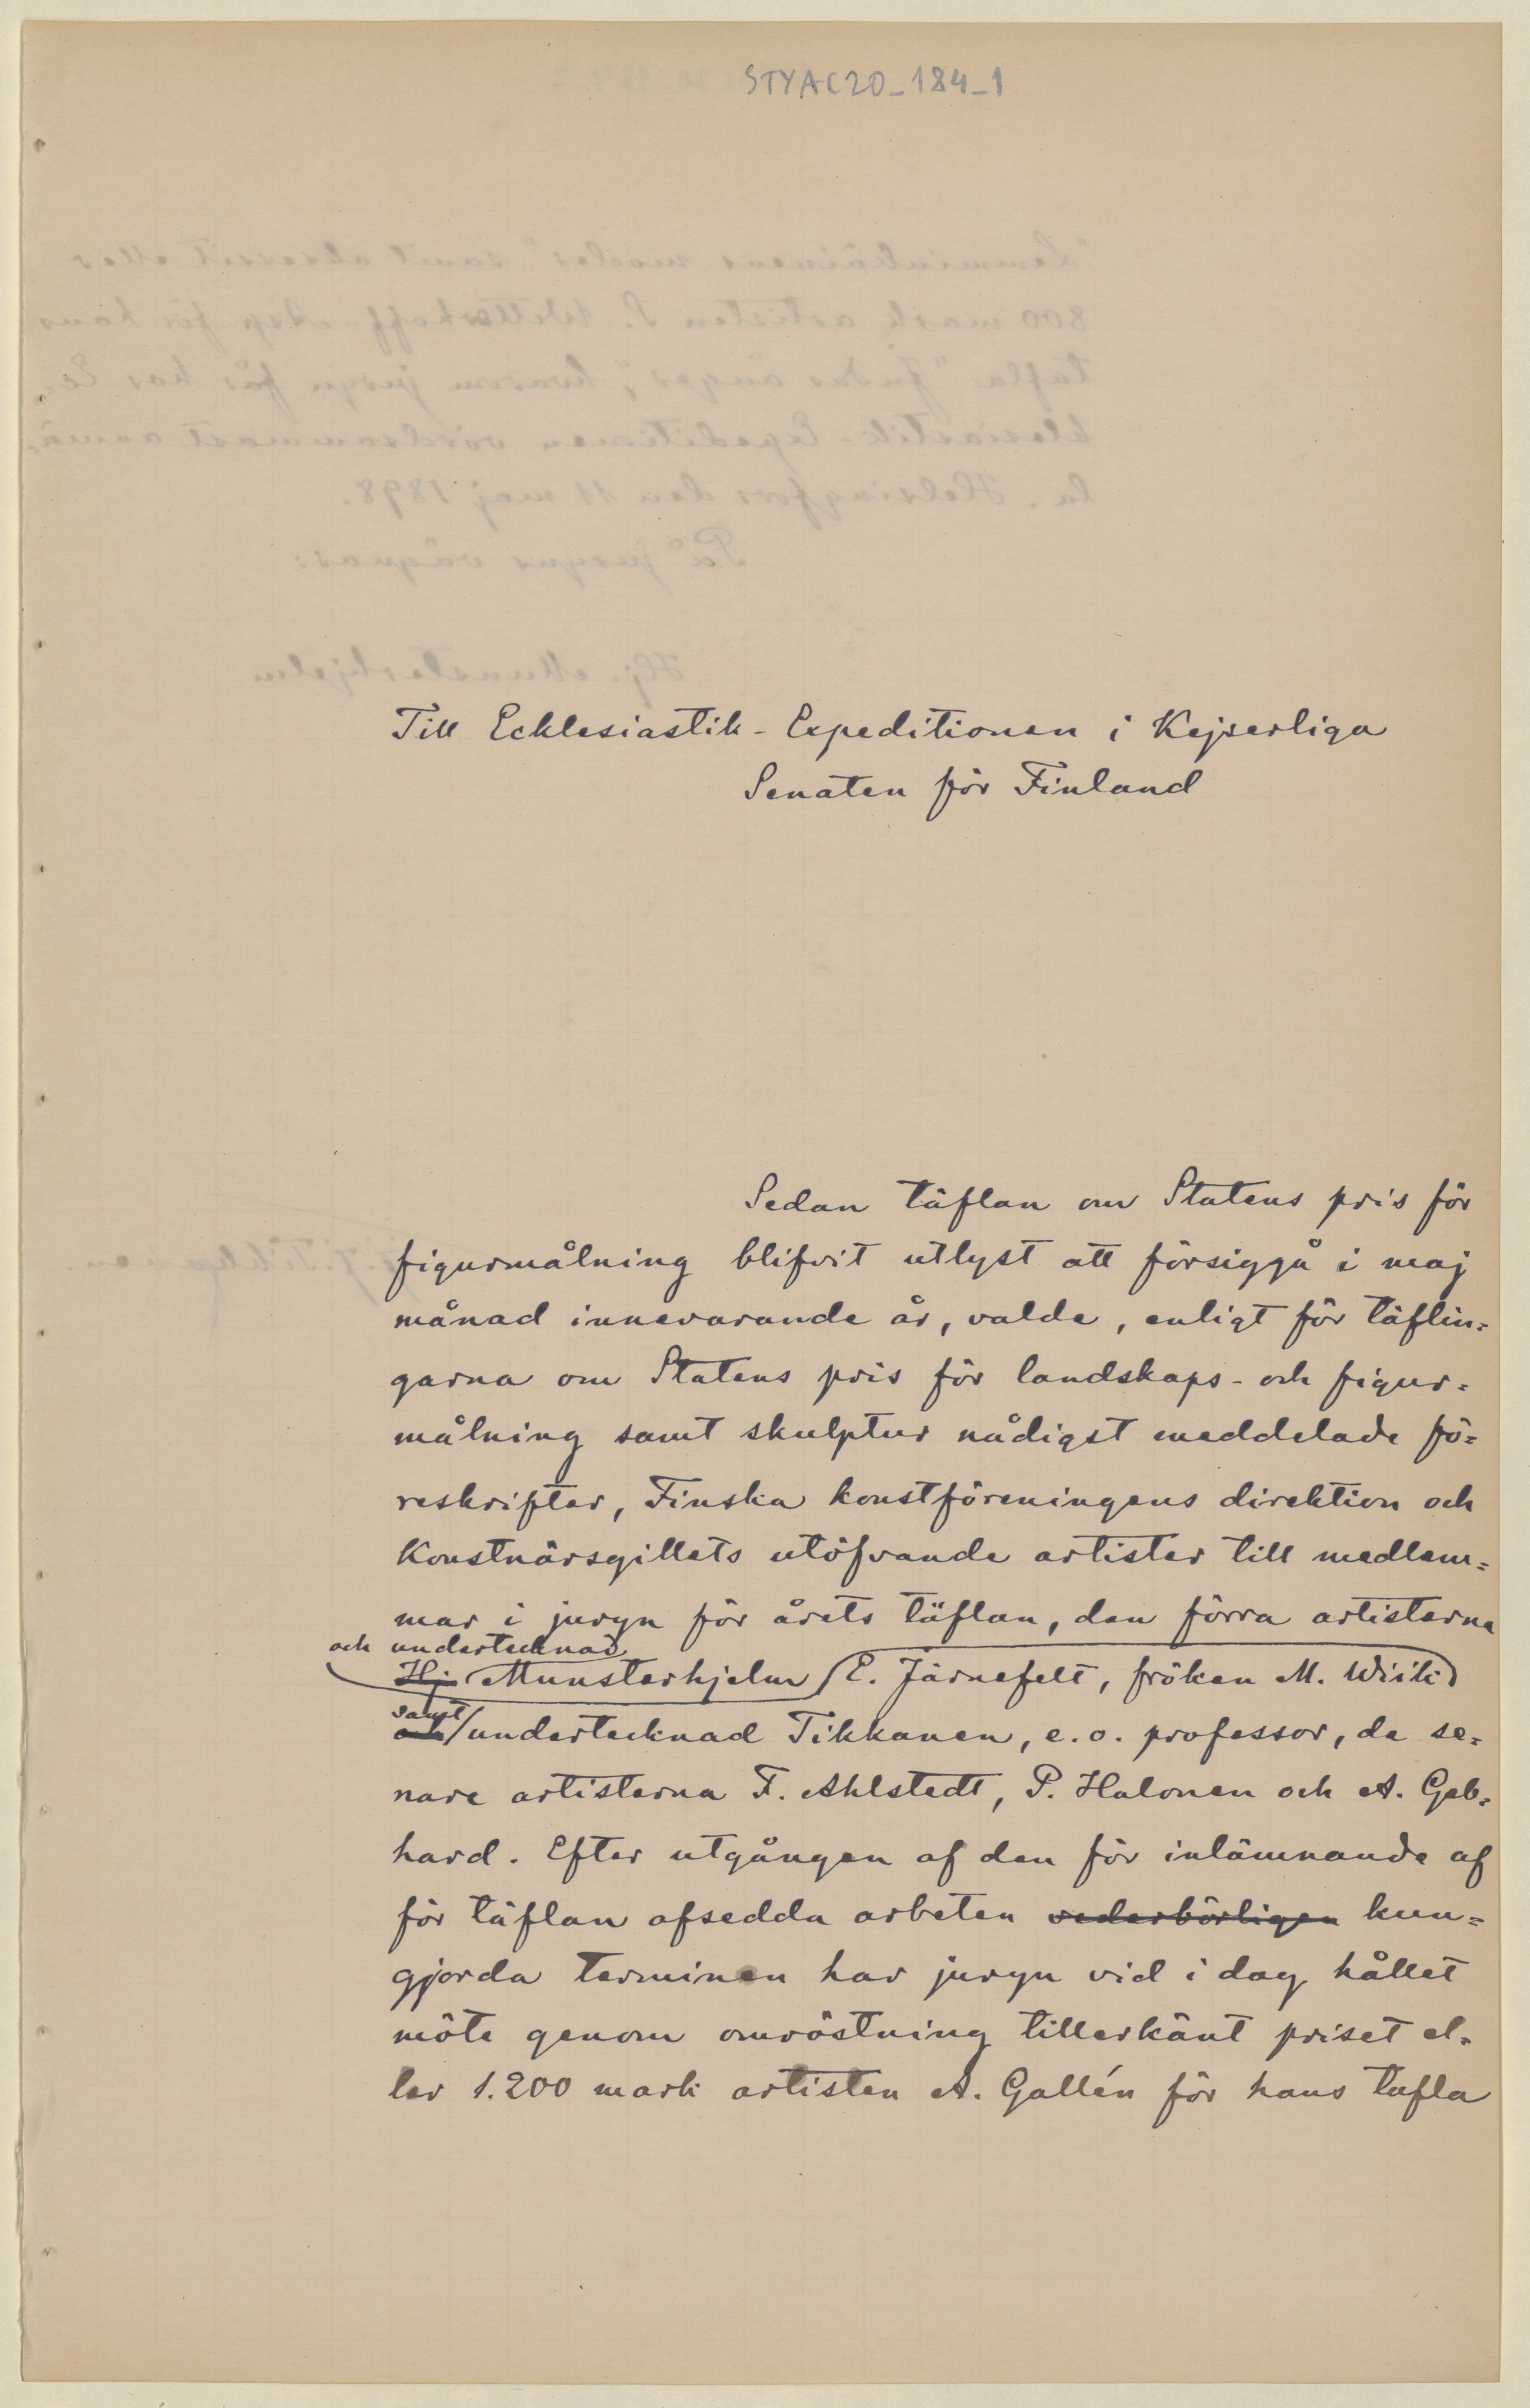 STYAC20_184_1
Till Ecklesiastik-Expeditionen i Kejserliga
Senaten för Finland
Sedan täflan om Statens pris för
figurmålning blifvit utlyst att försiggå i maj
månad innevarande år, valde, enligt för täflin=
garna om Statens pris för landskaps- och figur=
målning samt skulptur nådigst meddelade fö=
reskrifter, Finska konstföreningens direktion och
Konstnärsgillets utöfvande artister till medlem=
mar i juryn för årets täflan, den förra artisterna
och undertecknad
Hj. Munsterhjelm E. Järnefelt, fröken M. Wiik
samt
och undertecknad Tikkanen, e.o. professor, de se=
nare artisterna F. Ahlstedt, P. Halonen och A. Geb=
hard. Efter utgången af den för inlämnande af
för täflan afsedda arbeten vederbörligen kun=
gjorda terminen har juryn vid i dag hållet
möte genom omröstning tillerkänt priset el=
ler 1.200 mark artisten A. Gallén för hans tafla